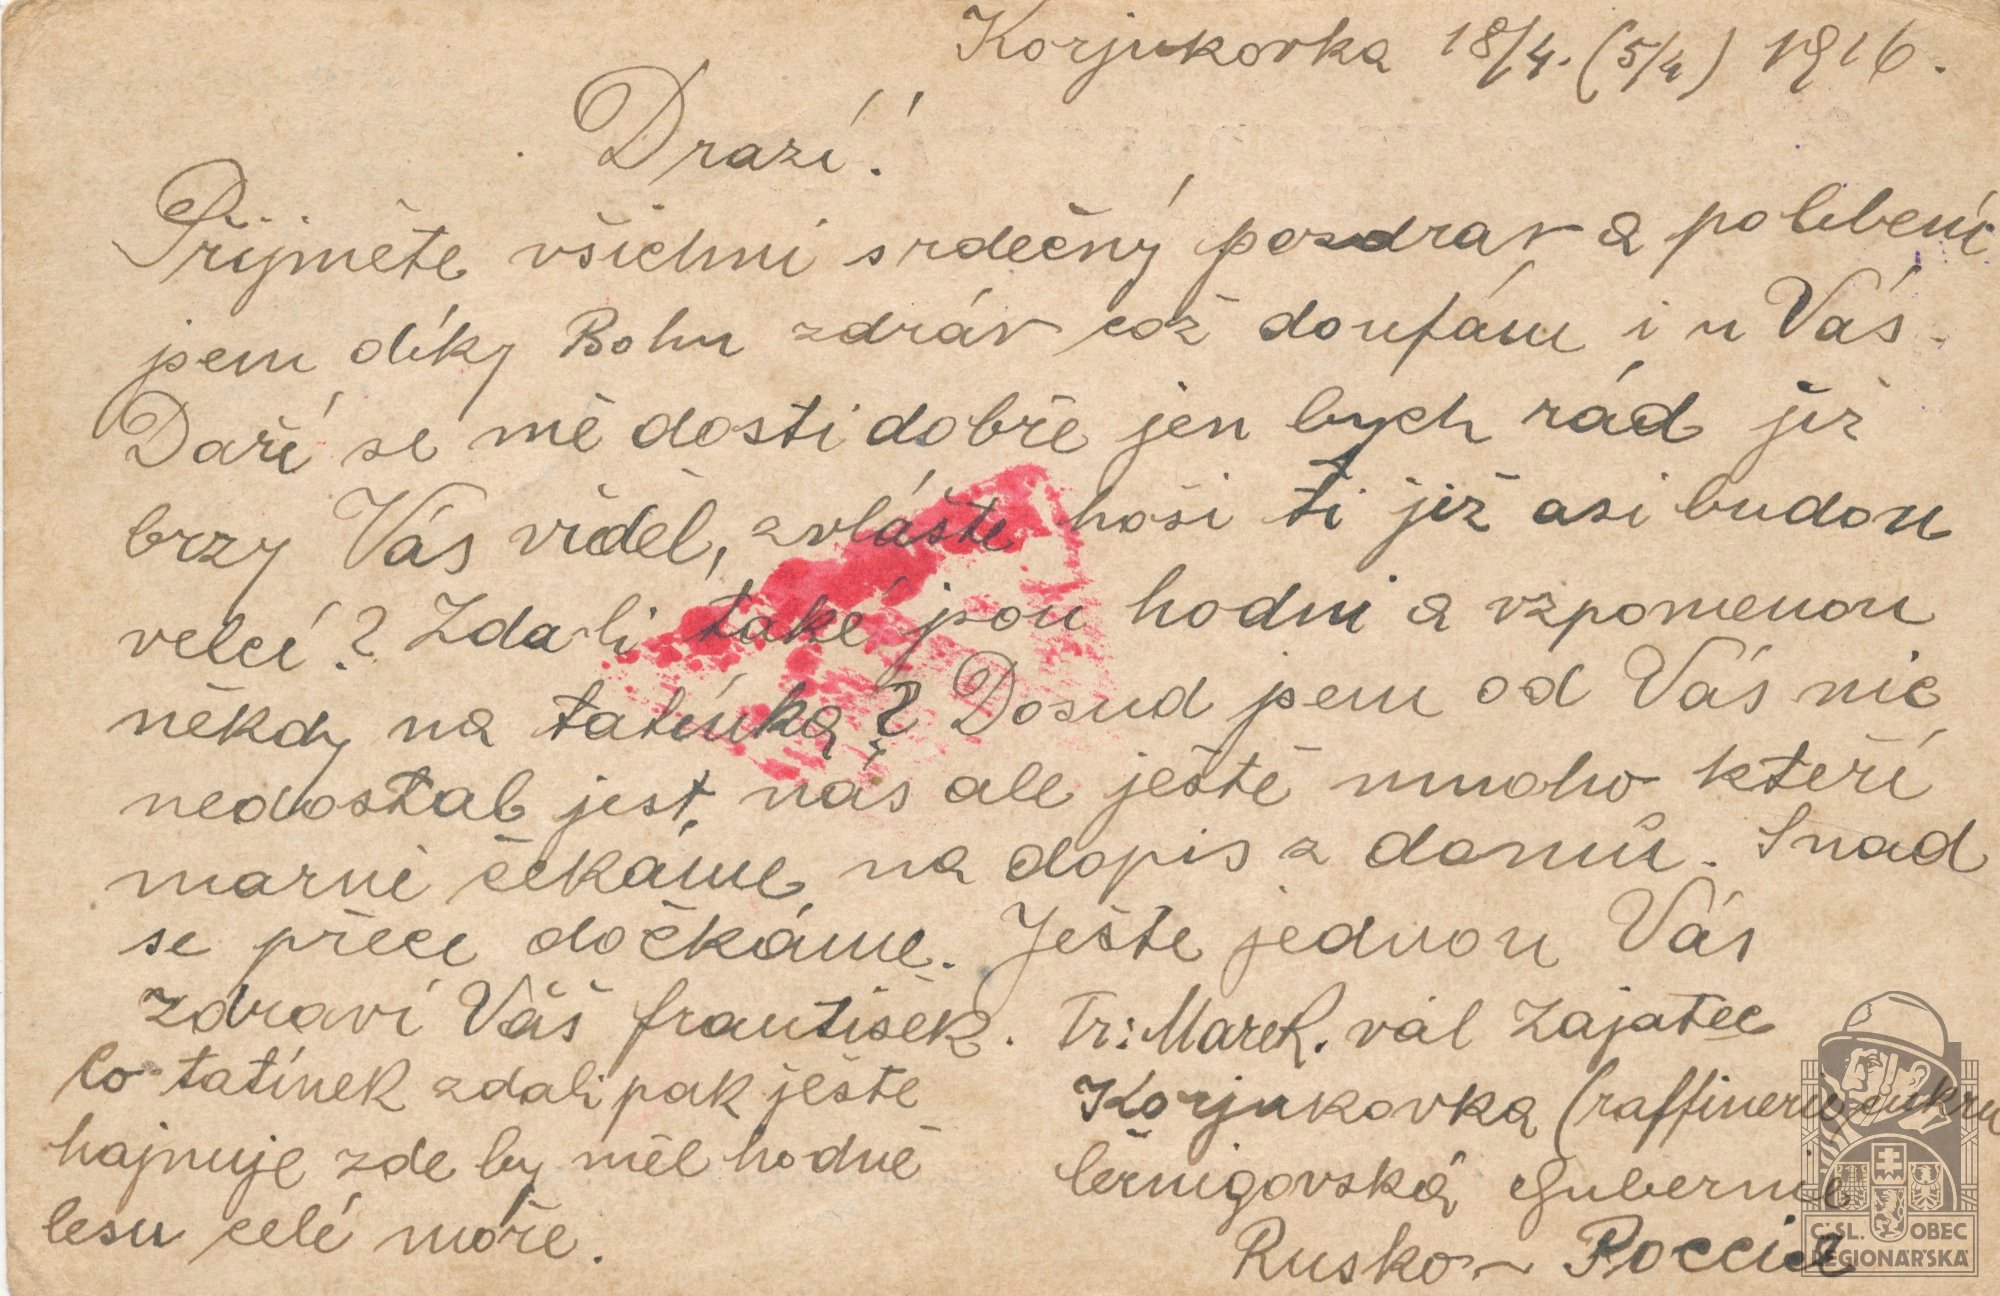 Korjukovka 18/4. (5/4) 1916.
Drazí!
Přijměte všichni srdečný pozdrav a políbení
jsem díky Bohu zdráv což doufám i u Vás.
Daří se mě dosti dobře jen bych rád již
brzy Vás viděl, zvláště hoši ti již asi budou
velcí? Zda-li také jsou hodni a vzpomenou
někdy na tatínka? Dosud jsem od Vás nic
nedostal jest nás ale ještě mnoho kteří
marně čekáme na dopis z domů. Snad
se přece dočkáme. Ještě jednou Vás
zdraví Váš františek. Fr: Marek. vál zajatec
Co tatínek zdali pak ještě
hajnuje zde by měl hodně
lesu celé moře.
Korjukovka (raffinerie cukru
černigovská Gubernie
Rusko - Poccia
ČSL. OBEC
LEGIONÁŘSKÁ